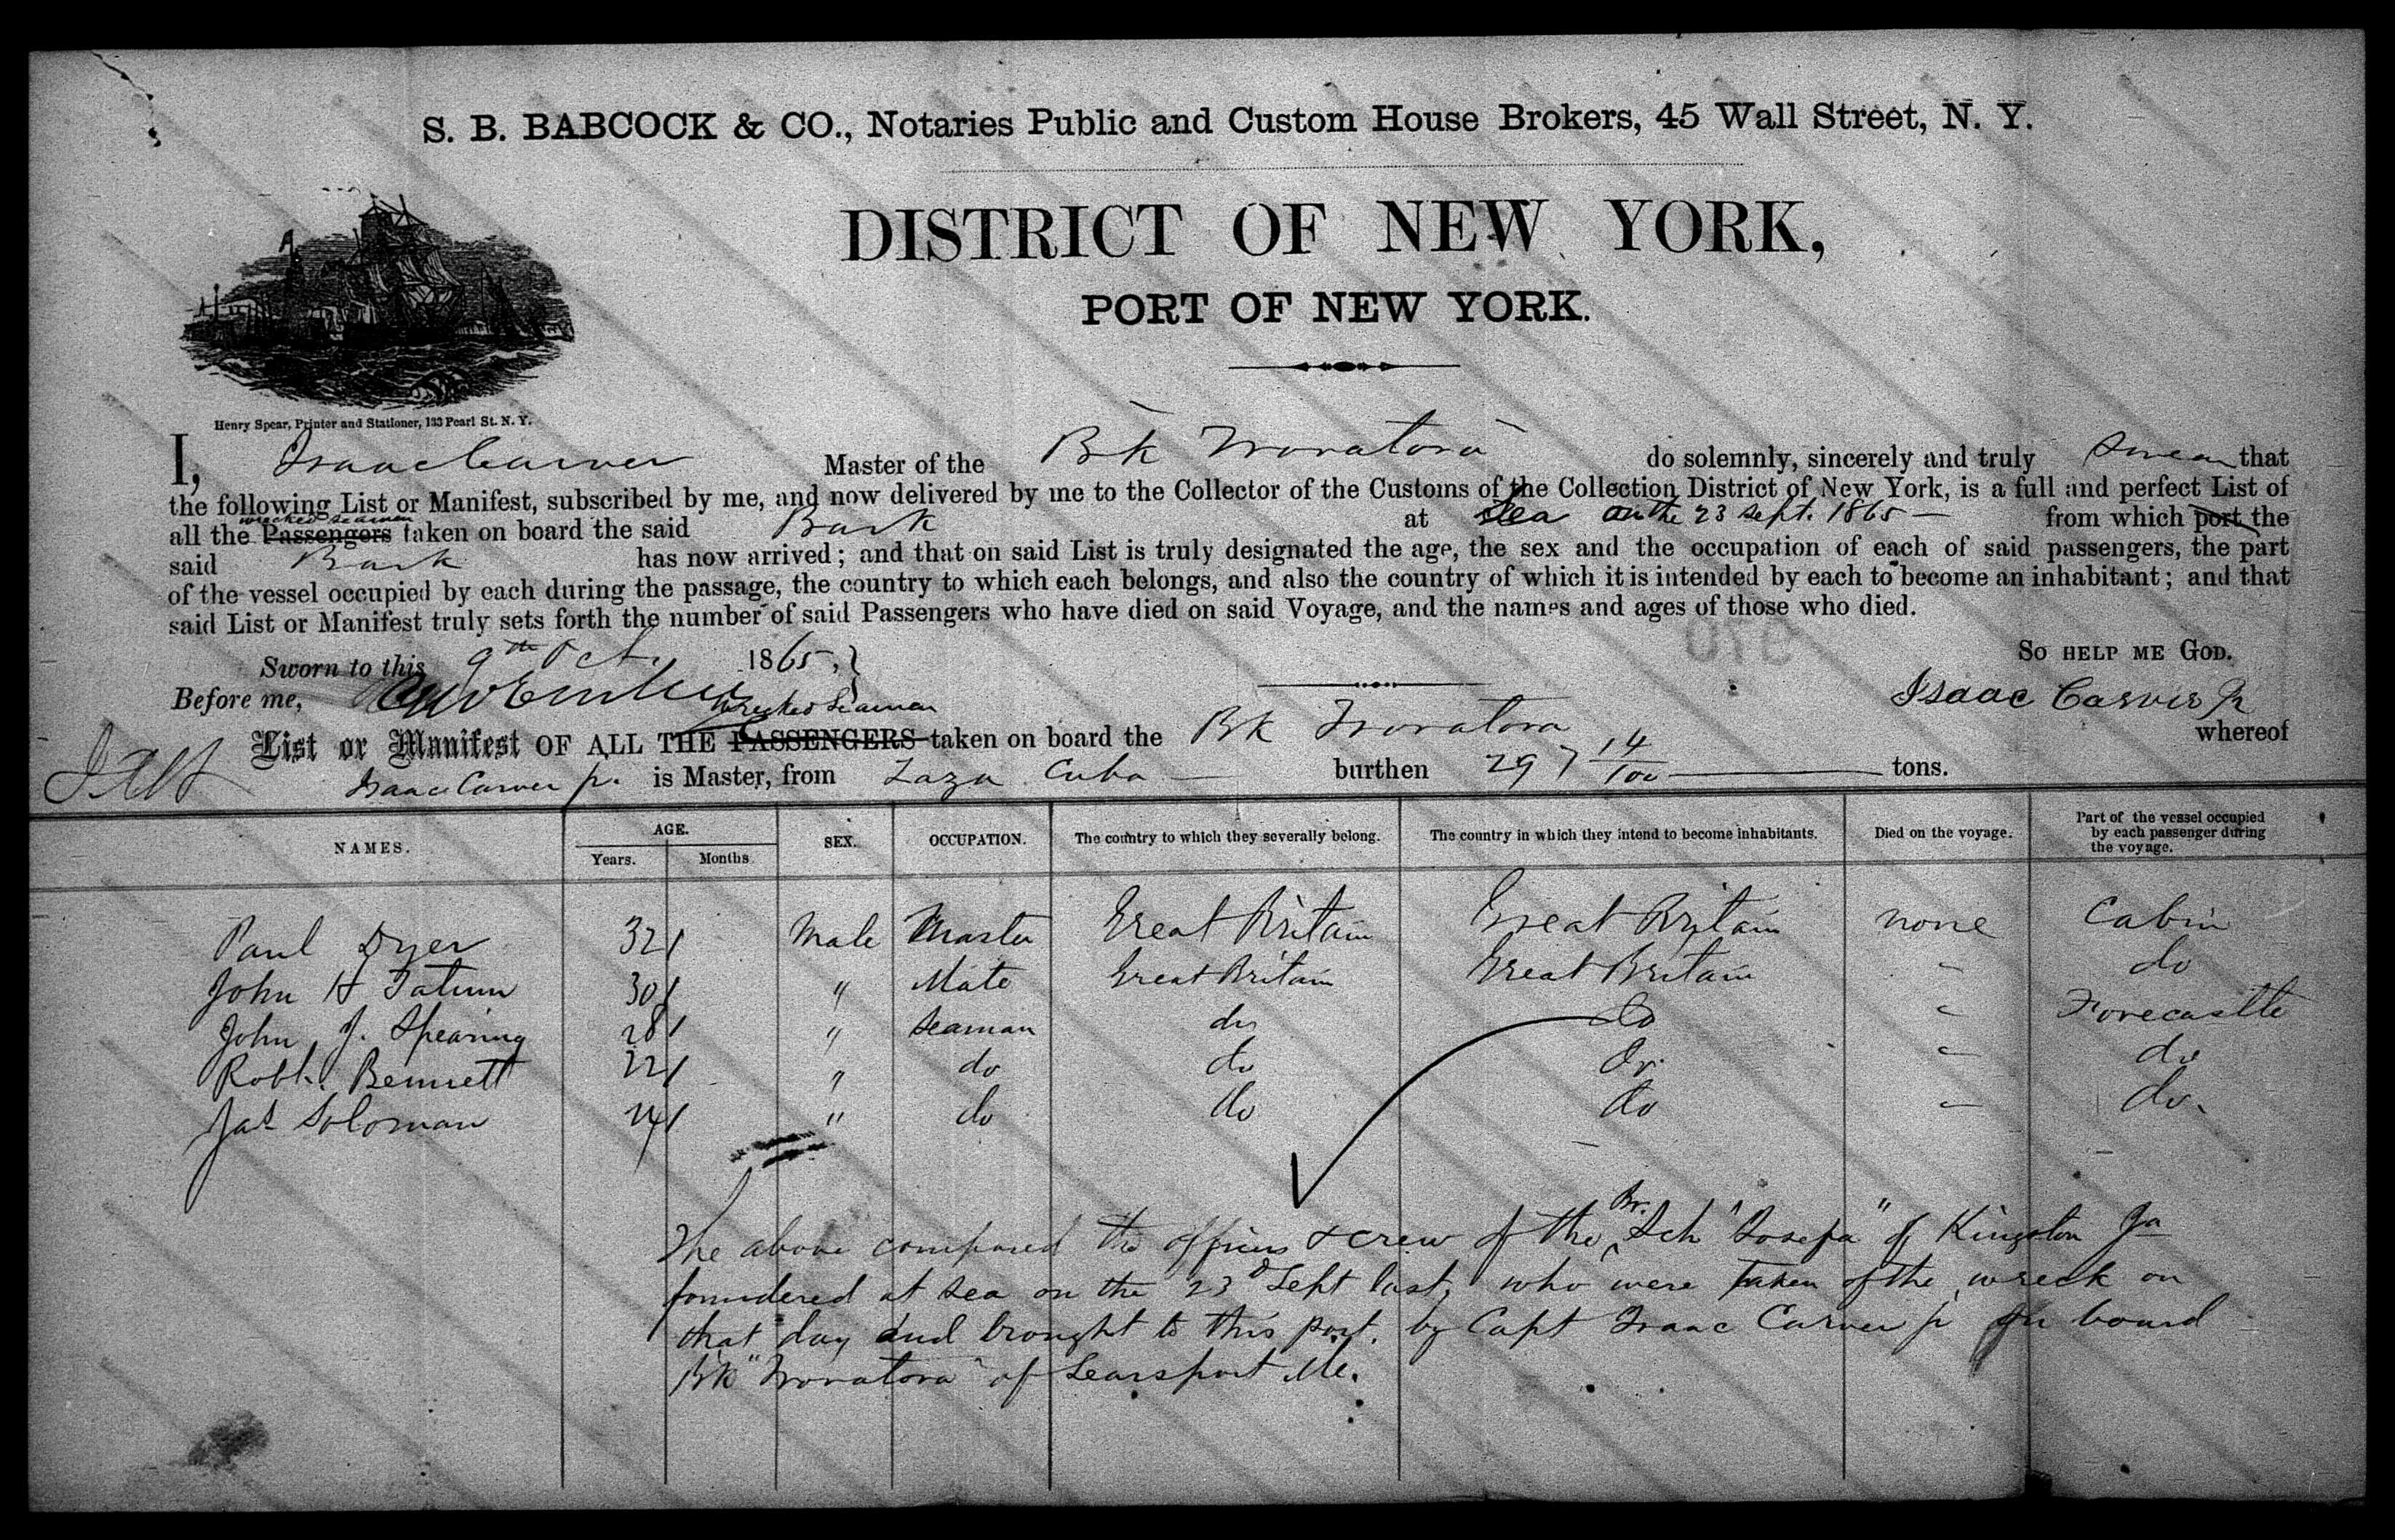 S. B. BABCOCK & CO., Notaries Public and Custom House Brokers, 45 Wall Street, N. Y.
DISTRICT OF NEW YORK,
PORT OF NEW YORK.
Henry Spear, Printer and Stationer, 133 Pearl St. N. Y.
I, Isaac Carver Master of the Bk Trovatora do solemnly, sincerely and truly Swear that
the following List or Manifest, subscribed by me, and now delivered by me to the Collector of the Customs of the Collection District of New York, is a full and perfect List of
wrecked seamen
all the Passengers taken on board the said Bark at Sea on the 23 sept. 1865 — from which port the
said Bark has now arrived; and that on said List is truly designated the age, the sex and the occupation of each of said passengers, the part
of the vessel occupied by each during the passage, the country to which each belongs, and also the country of which it is intended by each to become an inhabitant; and that
said List or Manifest truly sets forth the number of said Passengers who have died on said Voyage, and the names and ages of those who died.
Sworn to this 9th Oct. 1865, So HELP ME GOD.
Before me, Isaac Carver Jr
wrecked Seaman
List or Manifest OF ALL THE PASSENGERS taken on board the Bk Trovatora whereof
Isaac Carver jr. is Master, from Zaza Cuba — burthen 297 14/100 — tons.
NAMES. AGE. Years. Months SEX. OCCUPATION. The country to which they severally belong. The country in which they intend to become inhabitants. Died on the voyage. Part of the vessel occupied by each passenger during the voyage.
Paul Dyer 32 / Male Master Great Britain Great Britain none Cabin
John H Tatum 30 / " Mate Great Britain Great Britain - do
John J. Spearing 28 / " Seaman do Do - Forecastle
Robt. Bennett 22 / " do do Do - do
Jas Soloman 24 / " do do do - do.
The above compared the officers & crew of the Br. Sch "Josefa" of Kingston Ja
foundered at sea on the 23d Sept last, who were taken of the wreck on
that day and brought to this port. by Capt Isaac Carver jr on board
Bk "Trovatora" of Searsport Me.